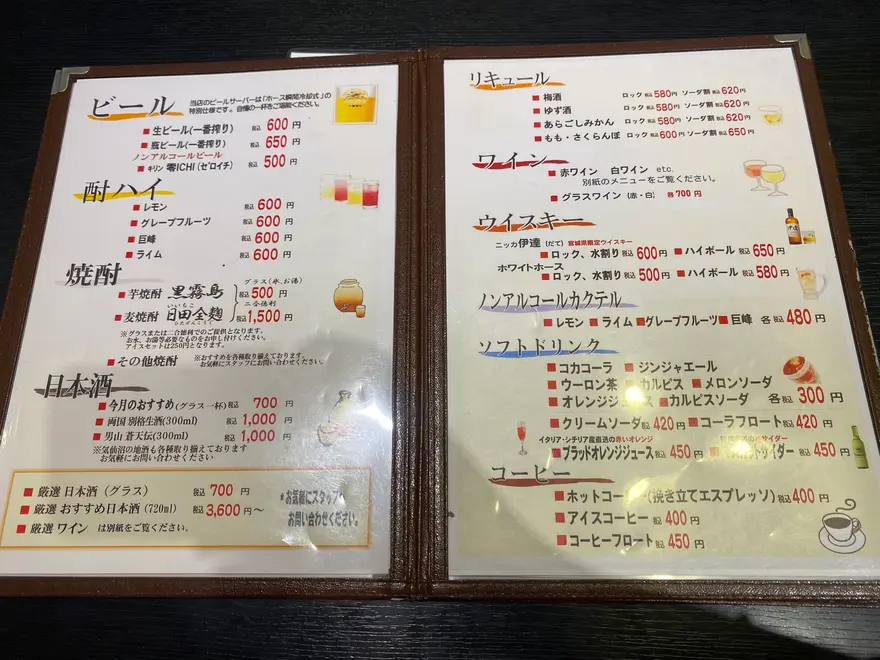 ビール
当店のビールサーバーは「ホース瞬間冷却式」の
特別仕様です。自慢の一杯をご堪能ください。
■ 生ビール(一番搾り) 税込 600 円
■ 瓶ビール(一番搾り) 税込 650 円
ノンアルコールビール
■ キリン 零ICHI (ゼロイチ) 税込 500 円
酎ハイ
■ レモン 税込 600 円
■ グレープフルーツ 税込 600 円
■ 巨峰 税込 600 円
■ ライム 税込 600 円
焼酎
グラス(氷、お湯)
■ 芋焼酎 黒霧島 税込 500 円
いいちこ 二合徳利
■ 麦焼酎 日田全麹 税込 1,500 円
ひたぜんこうじ
※グラスまたは二合徳利でのご提供となります。
お水、お湯等必要なものをお申し付けください。
アイスセットは250円となります。
■ その他焼酎 ※おすすめを各種取り揃えております。
お気軽にスタッフにお問い合わせください。
日本酒
■ 今月のおすすめ(グラス一杯) 税込 700 円
■ 両国 別格生酒(300ml) 税込 1,000 円
■ 男山 蒼天伝(300ml) 税込 1,000 円
※気仙沼の地酒も各種取り揃えております
お気軽にお問い合わせください
■ 厳選 日本酒 (グラス) 税込 700 円
■ 厳選 おすすめ日本酒 (720ml) 税込 3,600 円～
■ 厳選 ワイン は別紙をご覧ください。
*お気軽にスタッフへ
お問い合わせください。
リキュール
■ 梅酒 ロック 税込 580円 ソーダ割 税込 620円
■ ゆず酒 ロック 税込 580円 ソーダ割 税込 620円
■ あらごしみかん ロック 税込 580円 ソーダ割 税込 620円
■ もも・さくらんぼ ロック 税込 600円 ソーダ割 税込 650円
ワイン
■ 赤ワイン 白ワイン etc.
別紙のメニューをご覧ください。
■ グラスワイン (赤・白) 各税込 700円
ウイスキー
ニッカ 伊達 (だて) 宮城県限定ウイスキー
■ ロック、水割り 税込 600円 ■ ハイボール 税込 650円
ホワイトホース
■ ロック、水割り 税込 500円 ■ ハイボール 税込 580円
ノンアルコールカクテル
■ レモン ■ ライム ■ グレープフルーツ ■ 巨峰 各税込 480円
ソフトドリンク
■ コカコーラ ■ ジンジャエール
■ ウーロン茶 ■ カルピス ■ メロンソーダ
■ オレンジジュース ■ カルピスソーダ 各税込 300円
■ クリームソーダ 税込 420円 ■ コーラフロート 税込 420円
イタリア・シチリア産直送の赤いオレンジ サイダー
■ ブラッドオレンジジュース 税込 450 円 サイダー 税込 450 円
コーヒー
■ ホットコーヒー (挽き立てエスプレッソ) 税込 400円
■ アイスコーヒー 税込 400円
■ コーヒーフロート 税込 450 円